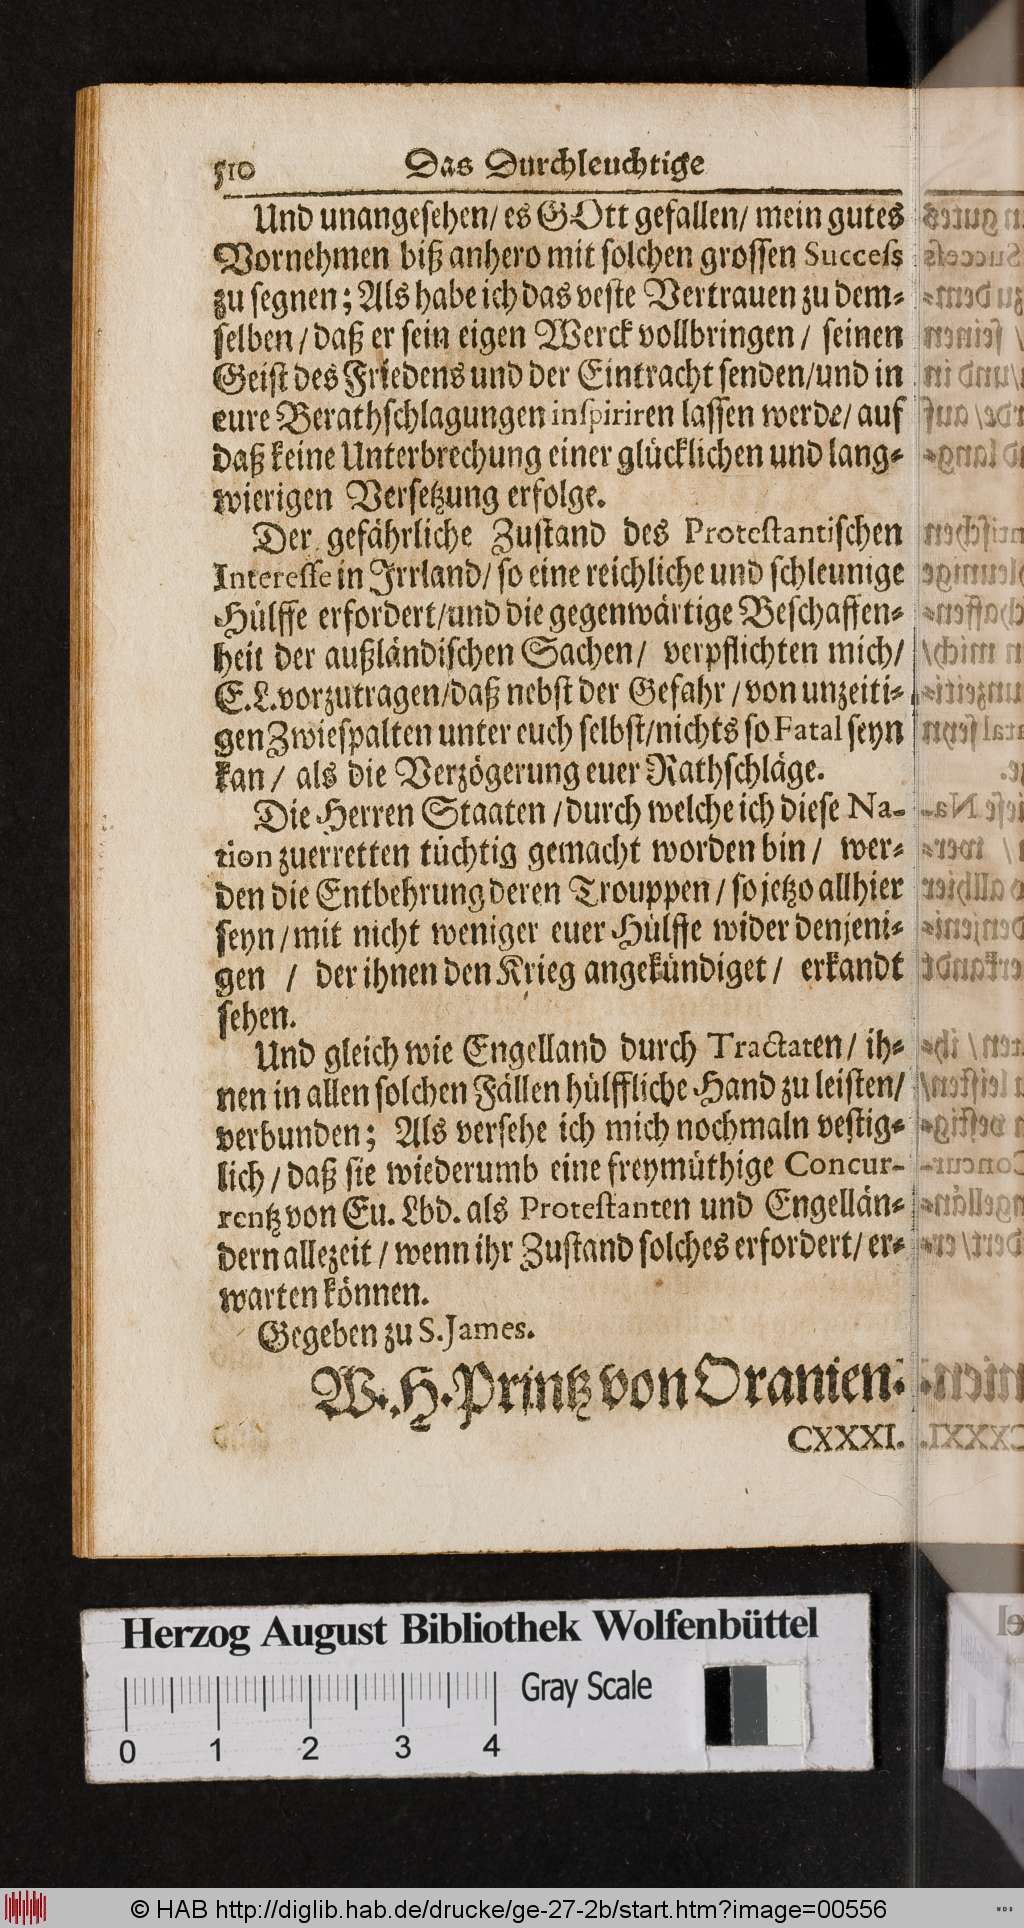 510 Das Durchleuchtige
Und unangesehen/ es GOtt gefallen/ mein gutes
Vornehmen biß anhero mit solchen grossen Success
zu segnen; Als habe ich das veste Vertrauen zu dem-
selben/ daß er sein eigen Werck vollbringen/ seinen
Geist des Friedens und der Eintracht senden/ und in
eure Berathschlagungen inspiriren lassen werde/ auf
daß keine Unterbrechung einer glücklichen und lang-
wierigen Versetzung erfolge.
Der gefährliche Zustand des Protestantischen
Interesse in Irrland/ so eine reichliche und schleunige
Hülffe erfordert/ und die gegenwärtige Beschaffen-
heit der außländischen Sachen/ verpflichten mich/
E. L. vorzutragen/ daß nebst der Gefahr/ von unzeiti-
gen Zwiespalten unter euch selbst/ nichts so Fatal seyn
kan/ als die Verzögerung euer Rathschläge.
Die Herren Staaten/ durch welche ich diese Na-
tion zuerretten tüchtig gemacht worden bin/ wer-
den die Entbehrung deren Trouppen/ so jetzo allhier
seyn/ mit nicht weniger euer Hülffe wider denjeni-
gen / der ihnen den Krieg angekündiget/ erkandt
sehen.
Und gleich wie Engelland durch Tractaten/ ih-
nen in allen solchen Fällen hülffliche Hand zu leisten/
verbunden; Als versehe ich mich nochmaln vestig-
lich/ daß sie wiederumb eine freymüthige Concur-
rentz von Eu. Lbd. als Protestanten und Engellän-
dern allezeit/ wenn ihr Zustand solches erfordert/ er-
warten können.
Gegeben zu S. James.
W. H. Printz von Oranien.
CXXXI.
Herzog August Bibliothek Wolfenbüttel
Gray Scale
0 1 2 3 4
© HAB http://diglib.hab.de/drucke/ge-27-2b/start.htm?image=00556